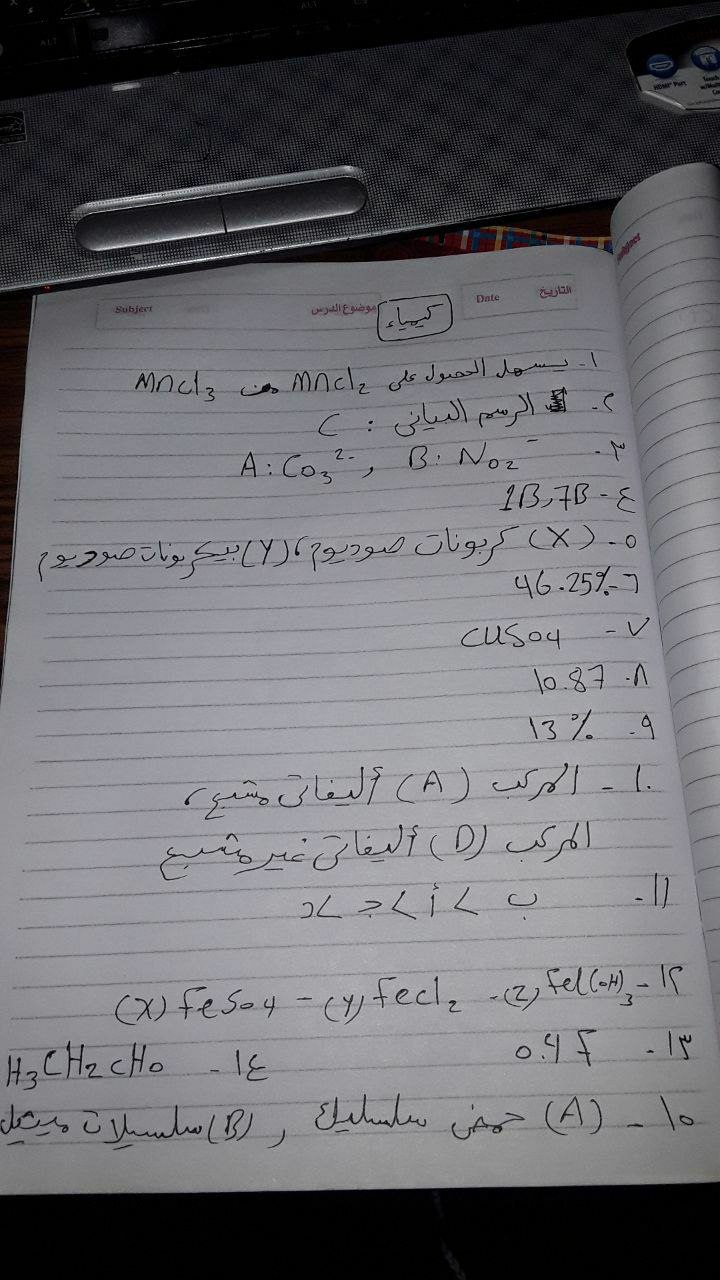 ALT
HDMI Port
Subject
موضوع الدرس
Date
التاريخ
كيمياء
١- يسهل الحصول على MnCl2 من MnCl3
٢- الرسم البياني : C
٣- A: CO3 2- , B: NO2 -
٤- 1B, 7B
٥- (X) كربونات صوديوم، (Y) بيكربونات صوديوم
٦- 46.25%
٧- CUSO4
٨- 10.87
٩- 13%
١٠- المركب (A) أليفاتى مشبع،
المركب (D) أليفاتى غير مشبع
١١- ب > أ > ج > د
١٢- (X) FeSO4 - (Y) FeCl2 - (Z) Fe(OH)3
١٣- 0.4 F
١٤- H3CH2CHO
١٥- (A) حمض سلسليك , (B) سلسيلات ميثيل